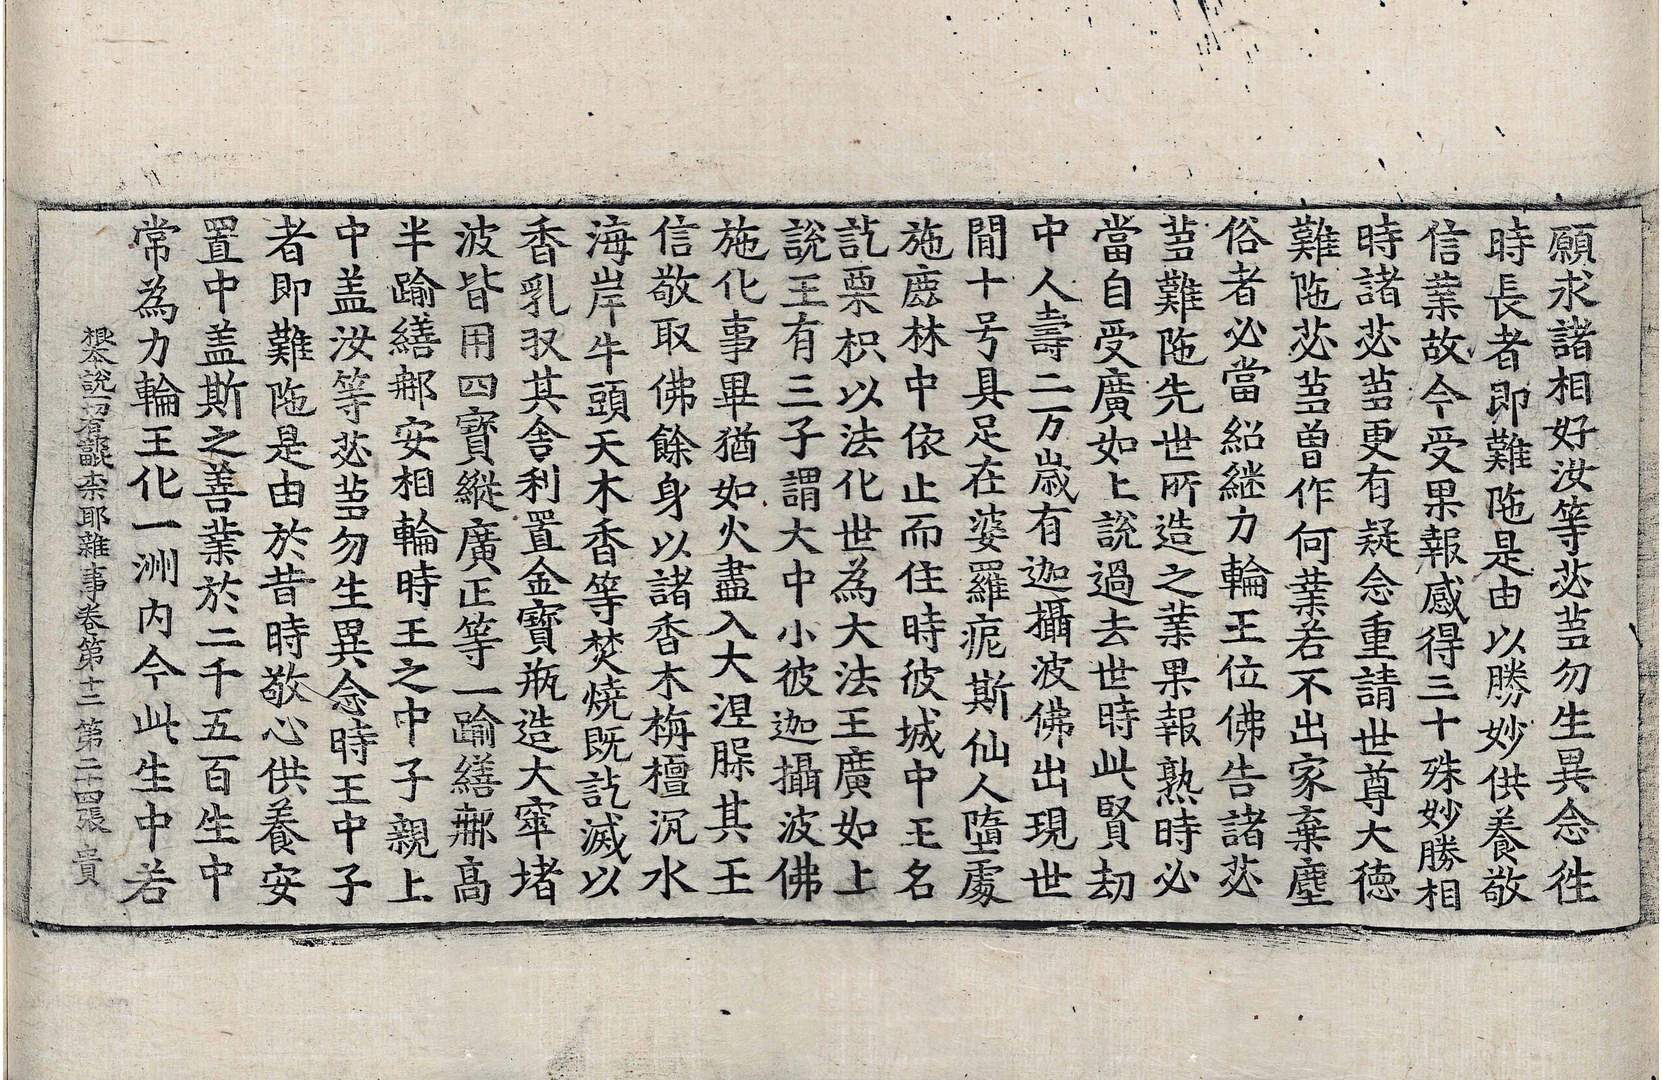 願求諸相好汝等苾芻勿生異念徃
時長者即難陁是由以勝妙供養敬
信業故今受果報感得三十殊妙勝相
時諸苾芻更有疑念重請世尊大德
難陁苾芻曾作何業若不出家棄塵
俗者必當紹継力輪王位佛告諸苾
芻難陁先世所造之業果報熟時必
當自受廣如上說過去世時此賢劫
中人壽二万歲有迦攝波佛出現世
間十号具足在婆羅痆斯仙人墮處
施鹿林中依止而住時彼城中王名
訖栗枳以法化世為大法王廣如上
說王有三子謂大中小彼迦攝波佛
施化事畢猶如火盡入大涅槃其王
信敬取佛餘身以諸香木栴檀沉水
海岸牛頭天木香等焚燒既訖滅以
香乳収其舍利置金寶瓶造大窣堵
波皆用四寶縱廣正等一踰繕那高
半踰繕那安相輪時王之中子親上
中盖汝等苾芻勿生異念時王中子
者即難陁是由於昔時敬心供養安
置中盖斯之善業於二千五百生中
常為力輪王化一洲内今此生中若
根本說一切有部毗柰耶雜事卷第十二 第二十四張 貴